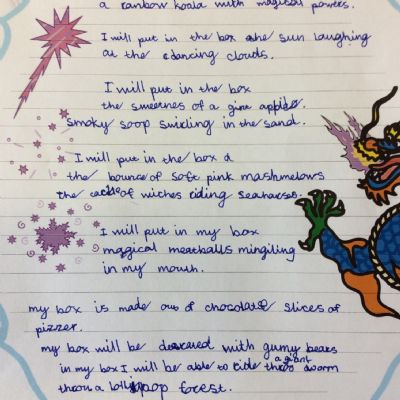 a rainbow koala with magical powers.
I will put in the box the sun laughing
at the dancing clouds.
I will put in the box
the of a apple.
smoky soop swirling in the sand.
I will put in the box a
the bounce of soft pink mashmelows
the of witches riding seahorses.
I will put in my box
magical meatballs mingiling
in my mouth.
my box is made out of chocolate slices of
pizzer.
my box will be with gumy bears
in my box I will be able to ride a giant worm
threw a lollipop forest.